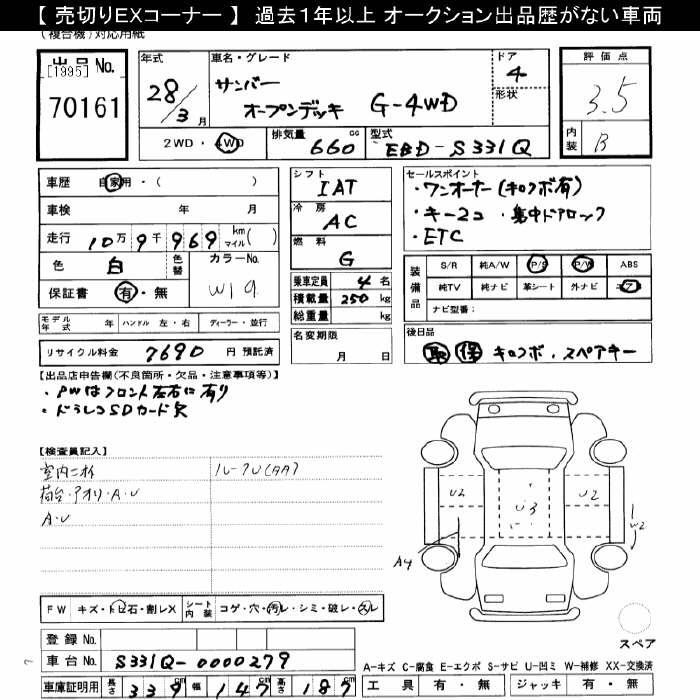 【 売切りEXコーナー 】 過去1年以上 オークション出品歴がない車両
(複合機)対応用紙
出品 No.
[1995]
70161
年式
28/3月
車名・グレード
サンバー
オープンデッキ G-4WD
ドア
4
形状
評価点
3.5
内装
B
2WD・4WD
排気量
660
cc
型式
EBD-S331Q
車歴 自家用・( )
車検 年 月
走行 10万9千969 km マイル( )
色 白 色替 カラーNo. W19
保証書 有・無
シフト
IAT
冷房
AC
燃料
G
乗車定員 4 名
積載量 250 kg
総重量 kg
セールスポイント
・ワンオーナー(キロクボ有)
・キー2コ ・集中ドアロック
・ETC
装備品
S/R 純A/W P/S P/W ABS
純TV 純ナビ 革シート 外ナビ エアB
ナビ型番:
モデル年式 年 ハンドル 左・右 ディーラー・並行
リサイクル料金 7690 円 預託済
名変期限
月 日
後日品
取 保 キロクボ、スペアキー
【出品店申告欄(不良箇所・欠品・注意事項等)】
・PWはフロント左右に有り
・ドラレコSDカード欠
【検査員記入】
室内ニオイ
荷台・アオリ・A・U
A・U
U2
U3
U2
W2
A4
FW キズ・トビ石・割レX シート内装 コゲ・穴・汚レ・シミ・破レ・スレ
スペア
登録 No.
車台 No. S331Q-0000279
車庫証明用 長さ 339 cm 幅 147 cm 高さ 187 cm
A-キズ C-腐食 E-エクボ S-サビ U-凹ミ W-補修 XX-交換済
工具 有・無 ジャッキ 有・無